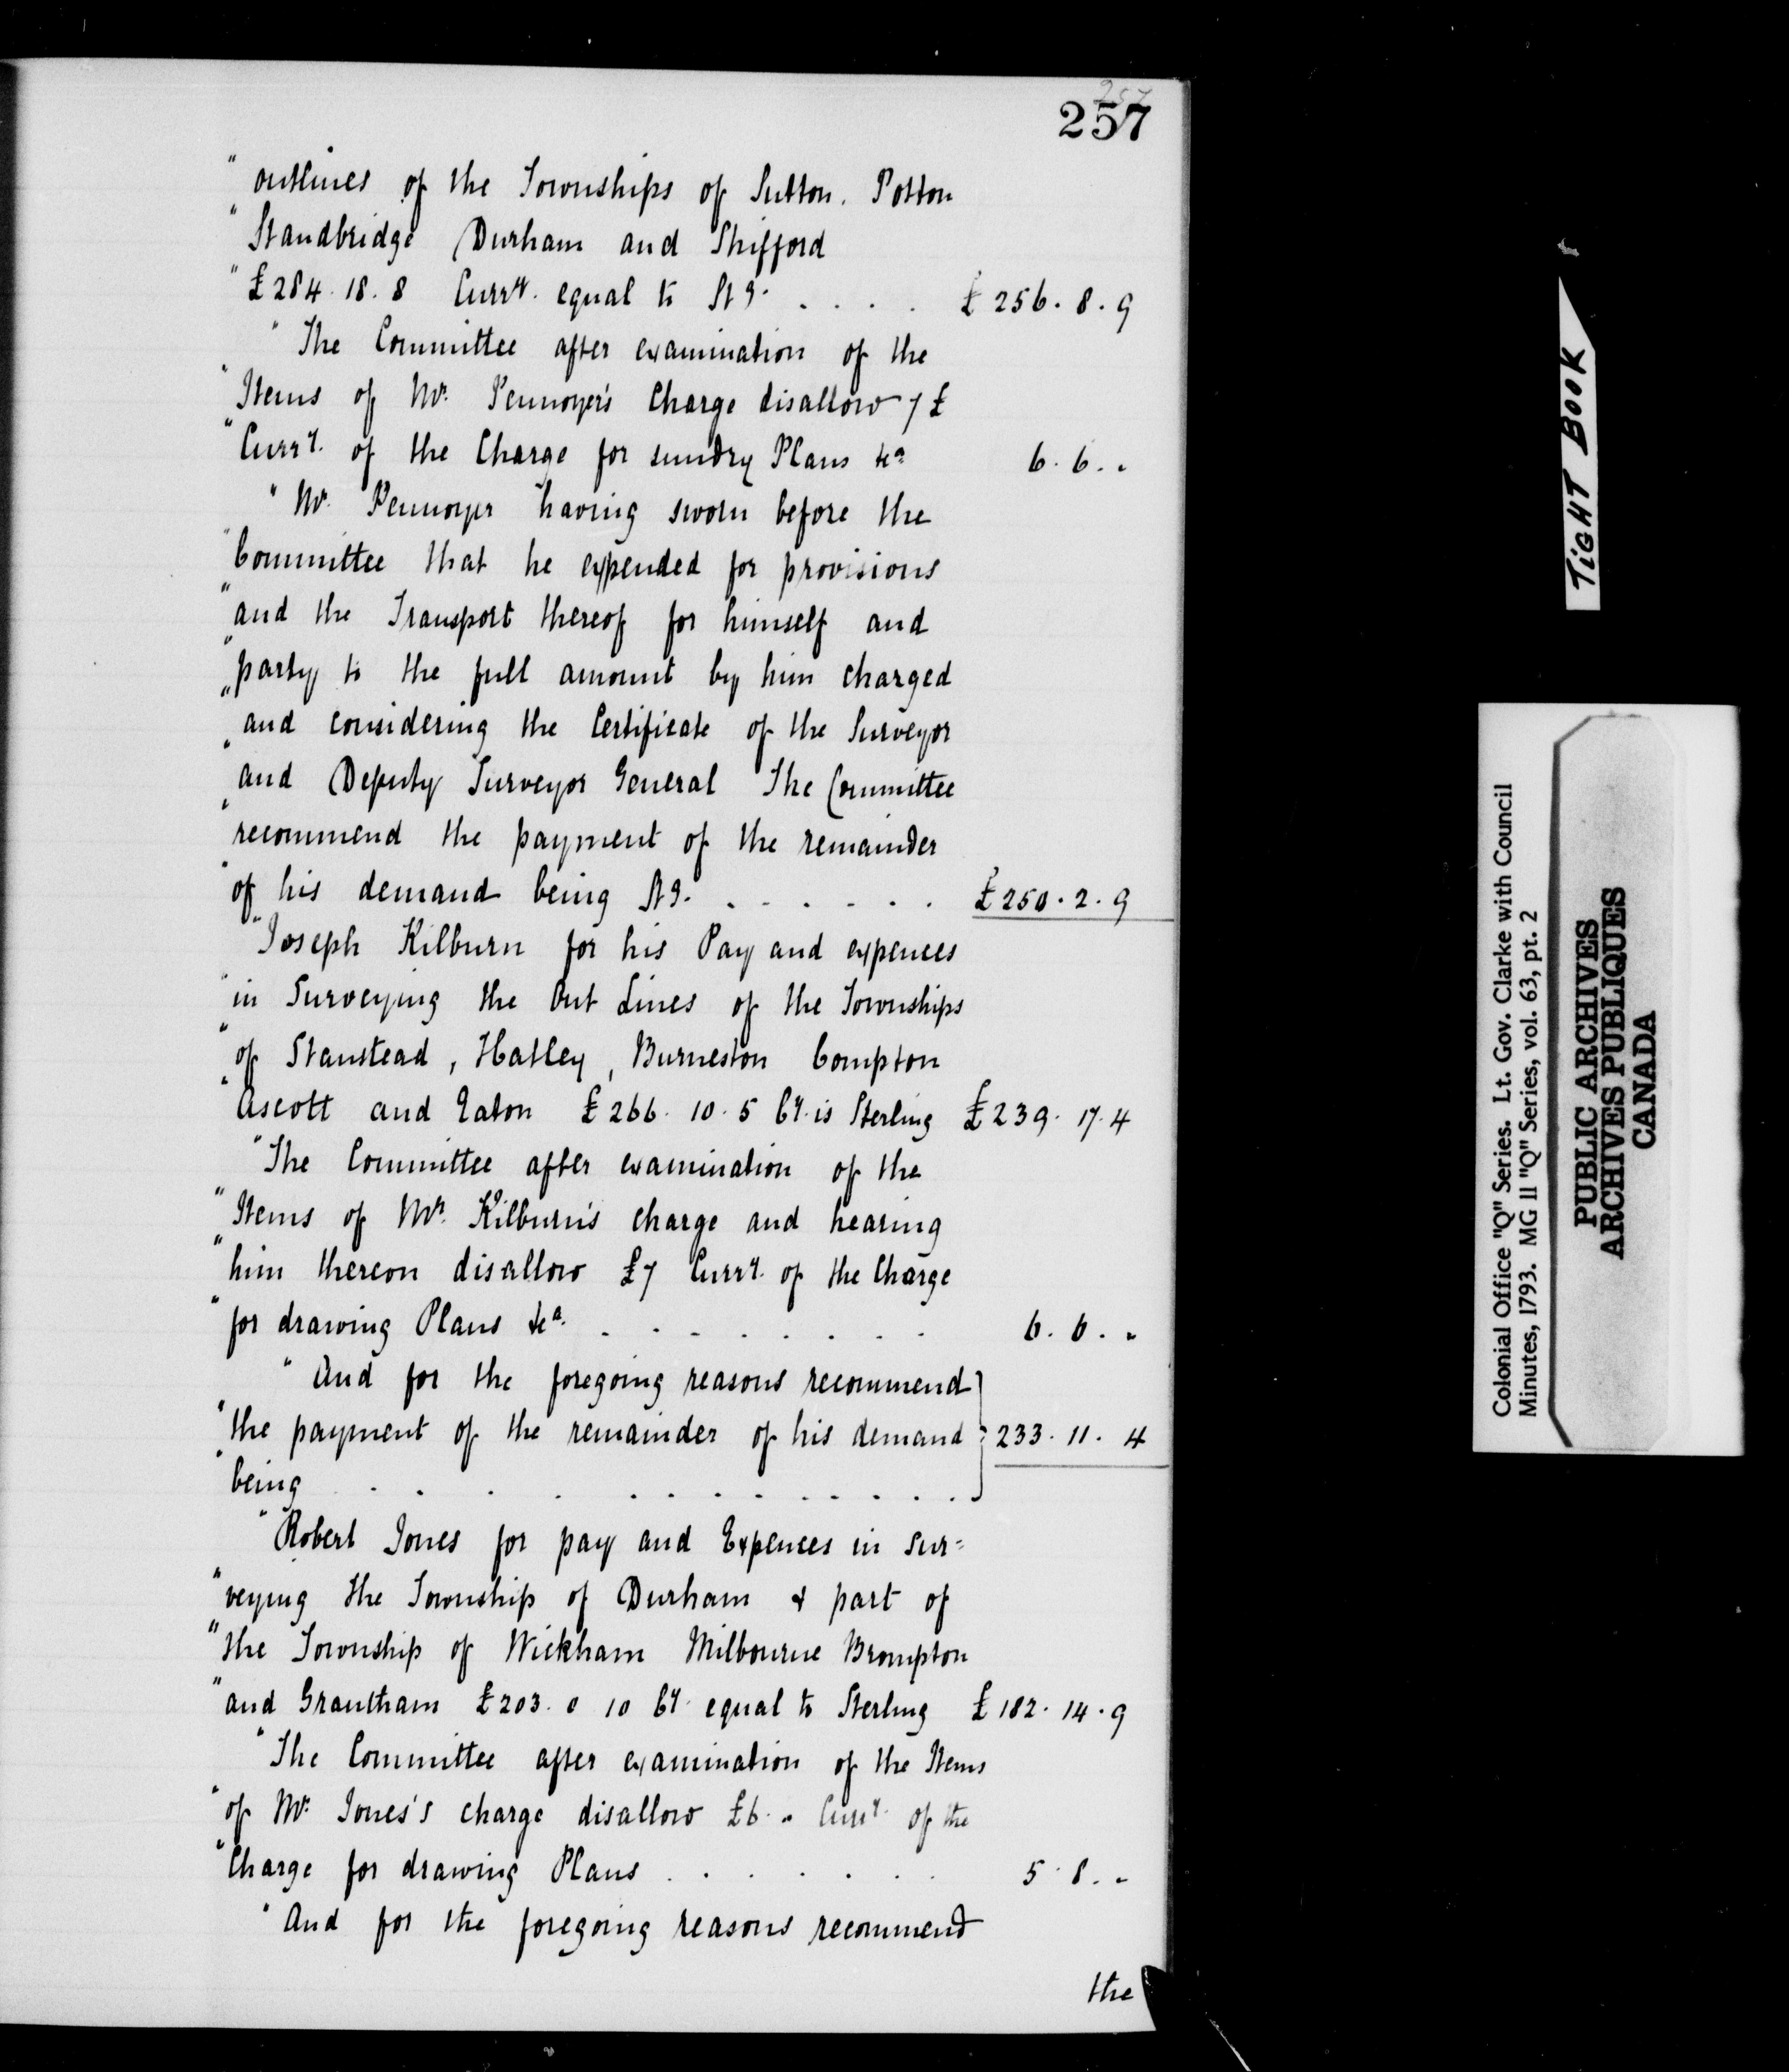 257
257
" outlines of the Townships of Sutton. Potton
" Standbridge Durham and Shifford
" £284.18.8 Curry. equal to Stg. . . . . £256.8.9
" The Committee after examination of the
" Items of Mr. Pennoyer's Charge disallow 7£
" Curry. of the Charge for sundry Plans &a 6.6.„
" Mr. Pennoyer having sworn before the
" Committee that he expended for provisions
" and the Transport thereof for himself and
" party to the full amount by him charged
" and considering the Certificate of the Surveyor
" and Deputy Surveyor General The Committee
" recommend the payment of the remainder
" of his demand being Stg. . . . . . . £250.2.9
" Joseph Kilburn for his Pay and expences
" in Surveying the Out Lines of the Townships
" of Stanstead, Hatley, Burneston Compton
" Ascott and Eaton £266.10.5 Cy. is Sterling £239.17.4
" The Committee after examination of the
" Items of Mr. Kilburn's charge and hearing
" him thereon disallow £7 Curry. of the Charge
" for drawing Plans &a. . . . . . . . . 6.6.„
" And for the foregoing reasons recommend
" the payment of the remainder of his demand 233.11.4
" being . . . . . . . . . . . .
" Robert Jones for pay and Expences in Sur=
" veying the Township of Durham & part of
" the Township of Wickham Milbourne Brompton
" and Grantham £203.0 10 Cy. equal to Sterling £182.14.9
" The Committee after examination of the Items
" of Mr. Jones's charge disallow £6.„ Curry. of the
" Charge for drawing Plans . . . . . . 5.8.„
" And for the foregoing reasons recommend
the
TIGHT BOOK
Colonial Office "Q" Series. Lt. Gov. Clarke with Council
Minutes, 1793. MG 11 "Q" Series, vol. 63, pt. 2
PUBLIC ARCHIVES
ARCHIVES PUBLIQUES
CANADA